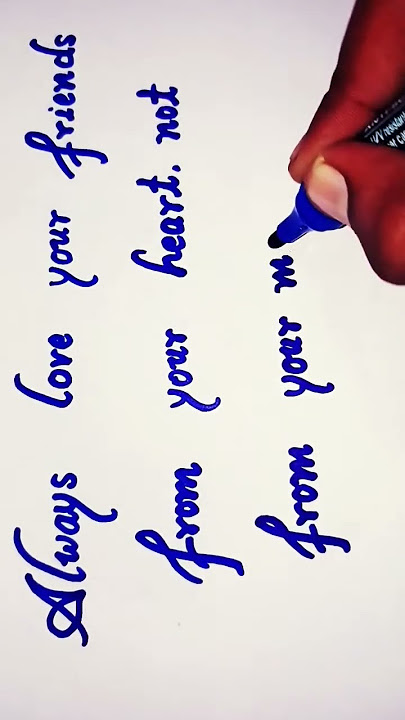 Always love your friends
from your heart. not
from your m